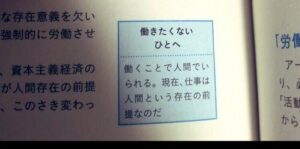 な存在意義を欠い
強制的に労働させ
資本主義経済の
が人間存在の前提
、このさき変わっ
働きたくない
ひとへ
働くことで人間でい
られる。現在、仕事は
人間という存在の前
提なのだ
「労働
アー
り、必
「活動
から